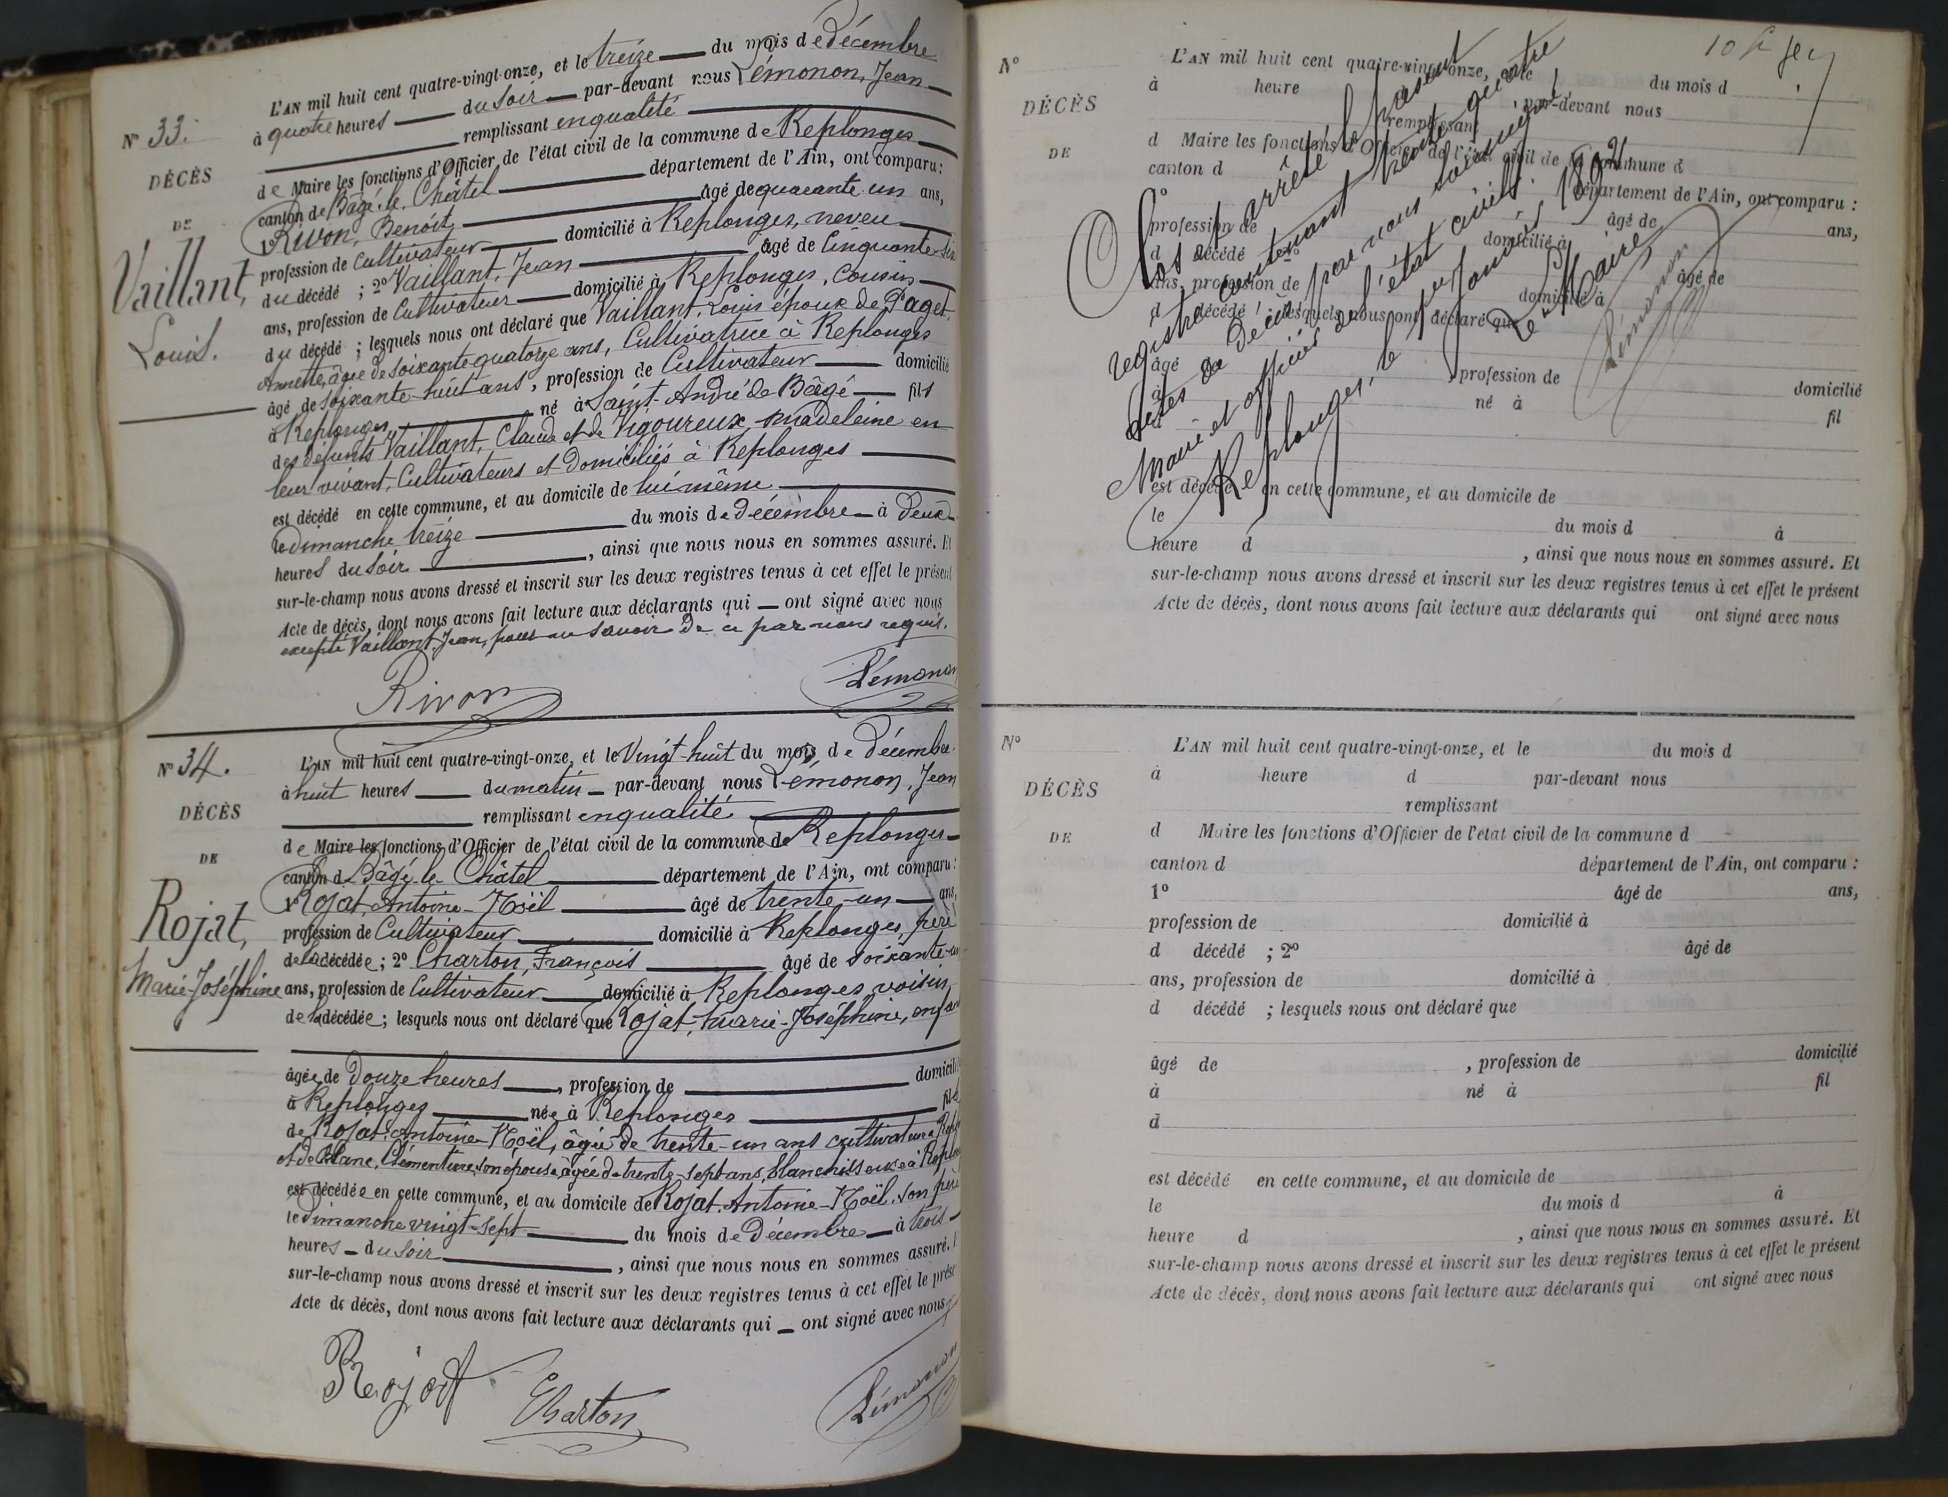 L'AN mil huit cent quatre-vingt-onze, et le treize du mois de décembre
à quatre heures du soir par-devant nous Lémonon, Jean
N° 33.
remplissant en qualité
DÉCÈS
de Maire les fonctions d'Officier de l'état civil de la commune de Replonges
canton de Bâgé-le-Châtel département de l'Ain, ont comparu :
DE
1° Rivon, Benoît, âgé de quarante-un ans,
Vaillant,
profession de Cultivateur domicilié à Replonges, neveu
Louis.
du décédé ; 2° Vaillant, Jean âgé de Cinquante-six
ans, profession de Cultivateur domicilié à Replonges, Cousin
du décédé ; lesquels nous ont déclaré que Vaillant, Louis époux de Paget,
Annette, âgée de soixante quatorze ans, Cultivatrice à Replonges
âgé de soixante-huit ans, profession de Cultivateur domicilié
à Replonges, né à Saint-André de Bâgé fils
des défunts Vaillant, Claude et de Vigoureux, Madeleine en
leur vivant, Cultivateurs et domiciliés à Replonges
est décédé en cette commune, et au domicile de lui même
le dimanche treize du mois de décembre à deux
heures du soir, ainsi que nous nous en sommes assuré. Et
sur-le-champ nous avons dressé et inscrit sur les deux registres tenus à cet effet le présent
Acte de décès, dont nous avons fait lecture aux déclarants qui ont signé avec nous
excepté Vaillant, Jean, pour ne savoir de ce par nous requis.
Rivon Lémonon
N° 34.
L'AN mil huit cent quatre-vingt-onze, et le Vingt-huit du mois de Décembre
à huit heures du matin par-devant nous Lémonon, Jean
DÉCÈS
remplissant en qualité
DE
de Maire les fonctions d'Officier de l'état civil de la commune de Replonges
canton de Bâgé-le-Châtel département de l'Ain, ont comparu :
1° Rojat, Antoine-Noël âgé de trente-un ans,
Rojat,
profession de Cultivateur domicilié à Replonges, père
de la décédée ; 2° Charton, François âgé de soixante-un
Marie-Joséphine
ans, profession de Cultivateur domicilié à Replonges, voisin
de la décédée ; lesquels nous ont déclaré que Rojat, Marie-Joséphine,
âgée de Douze heures, profession de domicilié
à Replonges née à Replonges fille
de Rojat, Antoine-Noël, âgé de trente-un ans cultivateur à
et de Blanc, Clémentine, son épouse, âgée de trente-sept ans, Blanchisseuse à
est décédée en cette commune, et au domicile de Rojat, Antoine-Noël, son père
le dimanche vingt-sept du mois de Décembre à trois
heures du soir, ainsi que nous nous en sommes assuré.
sur-le-champ nous avons dressé et inscrit sur les deux registres tenus à cet effet le
Acte de décès, dont nous avons fait lecture aux déclarants qui ont signé avec nous
Rojat Charton Lémonon
N°
L'AN mil huit cent quatre-vingt-onze, et le du mois d
à heure par-devant nous
DÉCÈS
remplissant
DE
d Maire les fonctions d'Officier de l'état civil de la commune d
canton d département de l'Ain, ont comparu :
1° âgé de ans,
profession de domicilié à
d décédé ; 2° âgé de
ans, profession de domicilié à
d décédé ; lesquels nous ont déclaré que
âgé de , profession de domicilié
à né à fil
d
est décédé en cette commune, et au domicile de
le du mois d à
heure d , ainsi que nous nous en sommes assuré. Et
sur-le-champ nous avons dressé et inscrit sur les deux registres tenus à cet effet le présent
Acte de décès, dont nous avons fait lecture aux déclarants qui ont signé avec nous
Clos et arrêté le présent
registre contenant trente-quatre
actes de Décès par nous soussigné,
Maire et officier de l'état civil.
Replonges, le 1er janvier 1892
Le Maire
Lémonon
N°
L'AN mil huit cent quatre-vingt-onze, et le du mois d
à heure d par-devant nous
DÉCÈS
remplissant
DE
d Maire les fonctions d'Officier de l'état civil de la commune d
canton d département de l'Ain, ont comparu :
1° âgé de ans,
profession de domicilié à
d décédé ; 2° âgé de
ans, profession de domicilié à
d décédé ; lesquels nous ont déclaré que
âgé de , profession de domicilié
à né à fil
d
est décédé en cette commune, et au domicile de
le du mois d à
heure d , ainsi que nous nous en sommes assuré. Et
sur-le-champ nous avons dressé et inscrit sur les deux registres tenus à cet effet le présent
Acte de décès, dont nous avons fait lecture aux déclarants qui ont signé avec nous